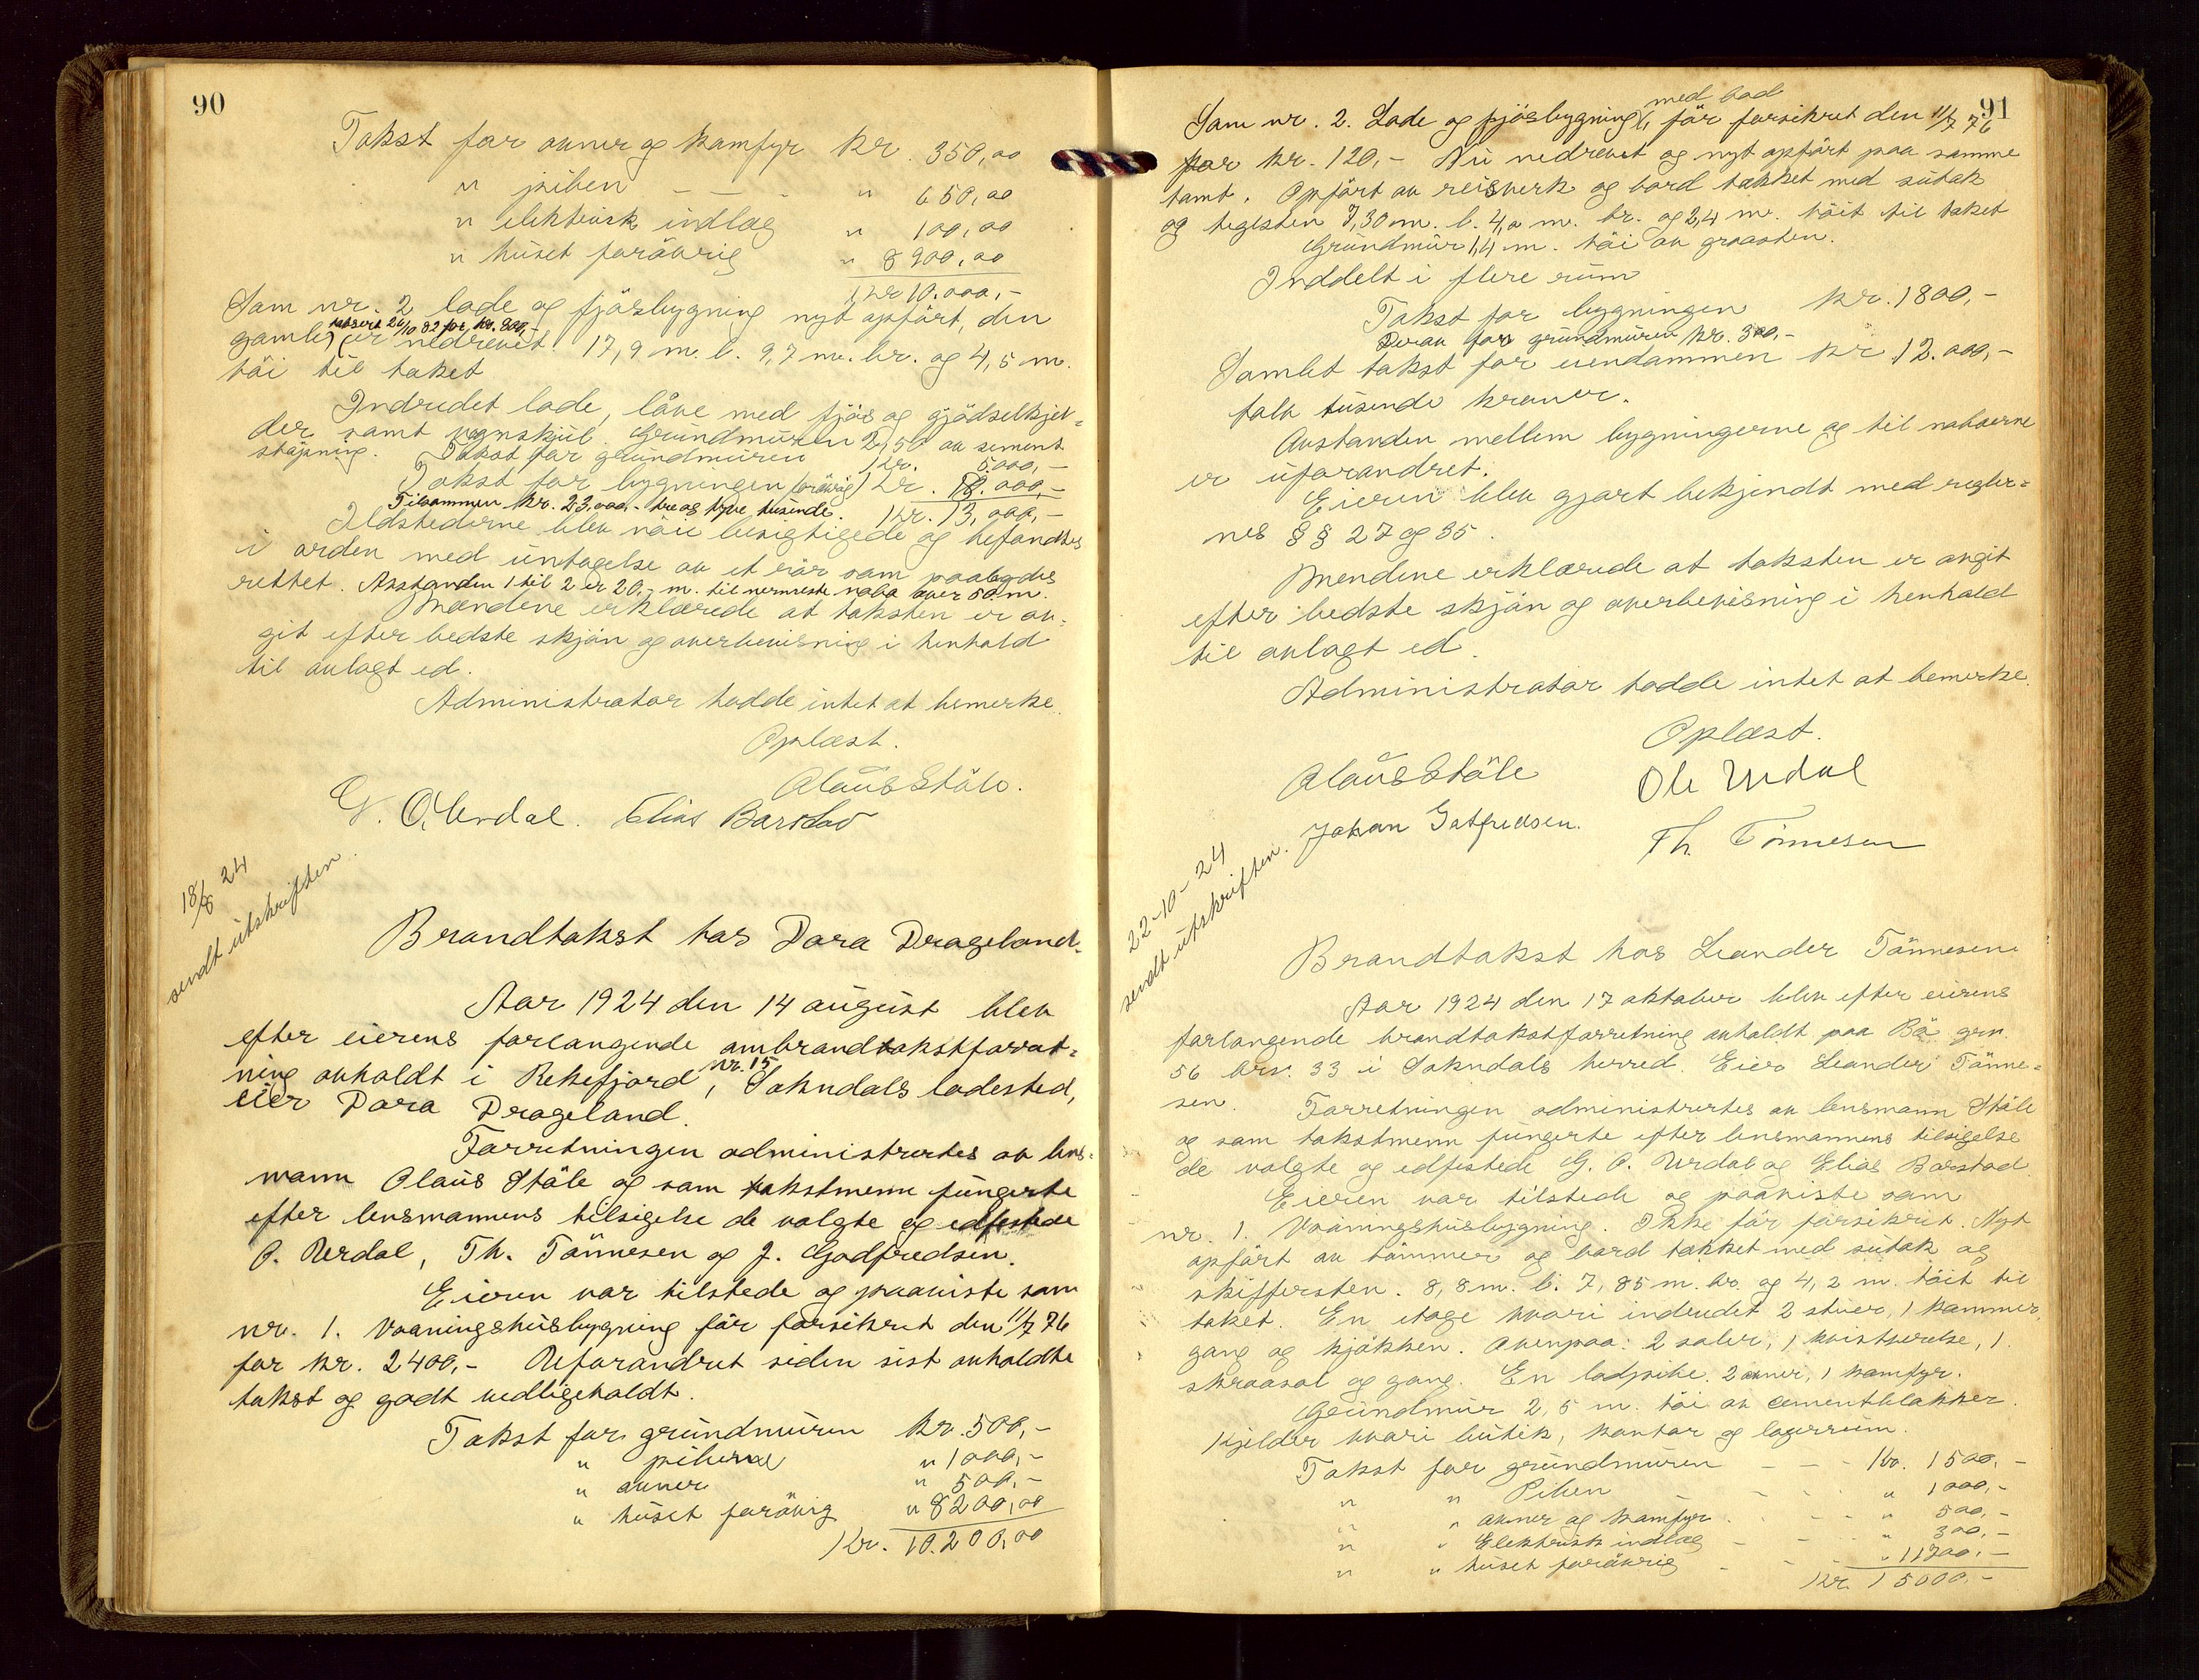 90
Takst for ovner og komfyr Kr. 350,00
" piben — — - " 650,00
" elektrisk indlæg " 100,00
" huset forövrig " 8900,00
Kr 10.000,-
Som nr. 2 lade og fjösbygning nyt opfört, den
taksert 26/10 82 for kr. 800,-
gamle er nedrevet. 17,9 m. l. 9,7 m. br. og 4,5 m.
höi til taket
Indredet lade, låve med fjös og gjödselkjel=
der samt vognskjul. Grundmuren 2,50 av sement
stöpning. Takst for grundmuren Kr. 5.000,-
Takst for bygningen forövrig Kr. 18.000,-
Tilsammen Kr. 23.000.- tre og tyve tusinde. Kr. 13,000,-
Ildstederne blev nöie besigtigede og befandtes
i orden med untagelse av et rör som paalagdes
rettet. Avstanden 1 til 2 er 20,- m. til nermeste nabo över 50 m.
Mændene erklærede at taksten er av-
git efter bedste skjön og overbevisning i henhold
til avlagt ed.
Administrator hadde intet at bemerke.
Oplæst.
Olaus Ståle.
G. O. Urdal. Elias Barstad
18/8 24
sendt utskriften.
Brandtakst hos Dora Drageland.
Aar 1924 den 14 august blev
efter eierens forlangende ombrandtakstforret=
nr. 15
ning avholdt i Rekefjord, Sokndals ladested,
eier Dora Drageland.
Forretningen administrertes av lens-
mann Olaus Ståle og som takstmenn fungerte
efter lensmannens tilsigelse de valgte og edfestede
O. Urdal, Th. Tönnesen og J. Godfredsen.
Eieren var tilstede og paaviste som
nr. 1. Vaaningshusbygning för forsikret den 11/7 76
for kr. 2400,- Uforandret siden sist avholdte
takst og godt vedligeholdt.
Takst for grundmuren Kr. 500,-
" piberne " 1000,-
" ovner " 500,-
" huset forövrig " 8200,00
Kr. 10.200,00
91
med bod
Som nr. 2. Lade og fjösbygning för forsikret den 11/7 76
for kr. 120,- Nu nedrevet og nyt opfört paa samme
tomt. Opfört av reisverk og bord tækket med sutak
og teglsten 7,30 m. l. 4,0 m. br. og 2,4 m. höit til taket
Grundmur 1,4 m. höi av graasten.
Inddelt i flere rum
Takst for bygningen Kr. 1800,-
Derav for grundmuren kr. 300,-
Samlet takst for eiendommen kr 12.000,-
tolv tusende kroner.
Avstanden mellem bygningerne og til naboerne
er uforandret.
Eieren blev gjort bekjendt med regler=
nes §§ 27 og 35.
Mendene erklærede at taksten er avgit
efter bedste skjön og overbevisning i henhold
til avlagt ed.
Administrator hadde intet at bemerke.
Oplæst.
Olaus Ståle Ole Urdal
Johan Gotfredsen. Th. Tönnesen
22-10-24
sendt utskriften.
Brandtakst hos Leander Tönnesen.
Aar 1924 den 17 oktober blev efter eierens
forlangende brandtakstforretning avholdt paa Bö grn.
56 brn. 33 i Sokndals herred. Eier Leander Tönne=
sen. Forretningen administrertes av lensmann Ståle
og som takstmenn fungerte efter lensmannens tilsigelse
de valgte og edfestede G. O. Urdal og Elias Barstad.
Eieren var tilstede og paaviste som
nr. 1. Vaaningshusbygning. Ikke för forsikret. Nyt
opfört av tömmer og bord tækket med sutak og
skiffersten. 8,8 m. l. 7,85 m. br. og 4,2 m. höit til
taket. En etage hvori indredet 2 stuer, 1 kammer,
gang og kjökken. Ovenpaa: 2 saler, 1 kvistværelse, 1.
skraasal og gang. En lodpibe. 2 ovner, 1 komfyr.
Grundmur 2,5 m. höi av cementblokker.
Kjelder hvori butik, kontor og lagerrum.
Takst for grundmuren — - - Kr. 1500,-
" " Piben - - - " 1000,-
" " ovner og komfyr - - - " 500,-
" " Elektrisk indlæg - - - " 300,-
" " huset forövrig - - " 11700,-
Kr. 15000,-